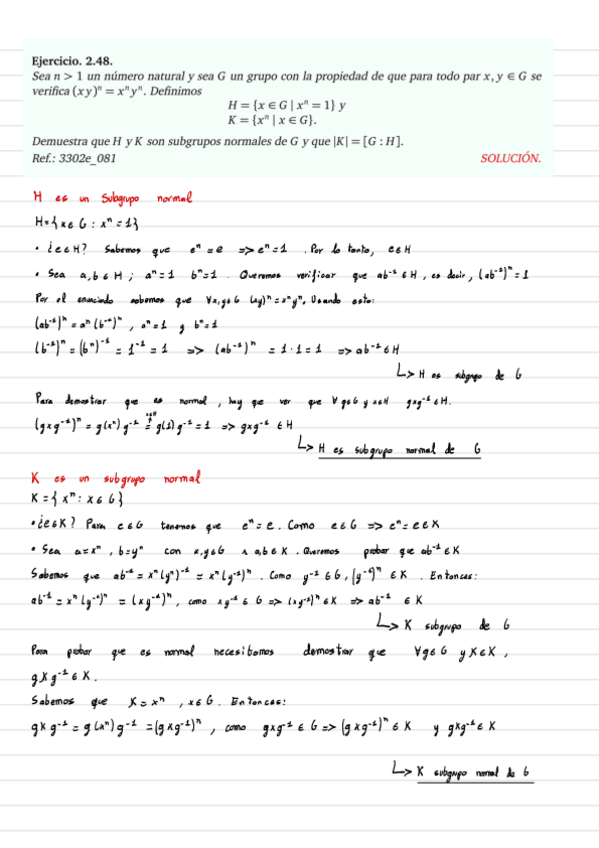 Ejercicio. 2.48.
Sea n > 1 un número natural y sea G un grupo con la propiedad de que para todo par x, y ∈ G se
verifica (xy)ⁿ = xⁿyⁿ. Definimos
H = {x ∈ G | xⁿ = 1} y
K = {xⁿ | x ∈ G}.
Demuestra que H y K son subgrupos normales de G y que |K| = [G : H].
Ref.: 3302e_081 SOLUCIÓN.
H es un Subgrupo normal
H = {x ∈ G : xⁿ = 1}
• ¿e ∈ H? Sabemos que eⁿ = e => eⁿ = 1. Por lo tanto, e ∈ H
• Sea a, b ∈ H ; aⁿ = 1 bⁿ = 1. Queremos verificar que ab⁻¹ ∈ H, es decir, (ab⁻¹)ⁿ = 1
Por el enunciado sabemos que ∀x,y∈G (xy)ⁿ = xⁿyⁿ. Usando esto:
(ab⁻¹)ⁿ = aⁿ(b⁻¹)ⁿ, aⁿ = 1 y bⁿ = 1
(b⁻¹)ⁿ = (bⁿ)⁻¹ = 1⁻¹ = 1 => (ab⁻¹)ⁿ = 1·1 = 1 => ab⁻¹ ∈ H
↳ H es subgrupo de G
Para demostrar que es normal, hay que ver que ∀ g∈G y x∈H gxg⁻¹ ∈ H.
x∈H
(gxg⁻¹)ⁿ = g(xⁿ)g⁻¹ = g(1)g⁻¹ = 1 => gxg⁻¹ ∈ H
↳ H es subgrupo normal de G
K es un subgrupo normal
K = {xⁿ : x ∈ G}
• ¿e ∈ K? Para e ∈ G tenemos que eⁿ = e. Como e ∈ G => eⁿ = e ∈ K
• Sea a = xⁿ, b = yⁿ con x,y∈G ∧ a,b ∈ K. Queremos probar que ab⁻¹ ∈ K
Sabemos que ab⁻¹ = xⁿ(yⁿ)⁻¹ = xⁿ(y⁻¹)ⁿ. Como y⁻¹ ∈ G, (y⁻¹)ⁿ ∈ K. Entonces:
ab⁻¹ = xⁿ(y⁻¹)ⁿ = (xy⁻¹)ⁿ, como xy⁻¹ ∈ G => (xy⁻¹)ⁿ ∈ K => ab⁻¹ ∈ K
↳ K subgrupo de G
Para probar que es normal necesitamos demostrar que ∀g∈G y K∈K,
gKg⁻¹ ∈ K.
Sabemos que K = xⁿ, x∈G. Entonces:
gKg⁻¹ = g(xⁿ)g⁻¹ = (gxg⁻¹)ⁿ, como gxg⁻¹ ∈ G => (gxg⁻¹)ⁿ ∈ K y gKg⁻¹ ∈ K
↳ K subgrupo normal de G